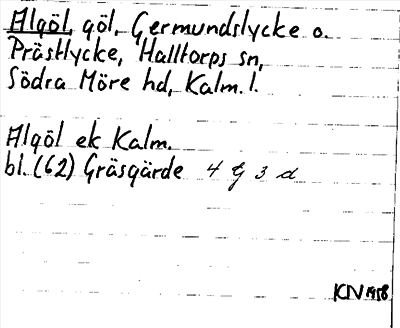 Algöl, göl, Germundslycke o.
Prästlycke, Halltorps sn,
Södra Möre hd, Kalm. l.
Algöl ek Kalm.
bl. (62) Gräsgärde 4 G 3 d
KN 1958